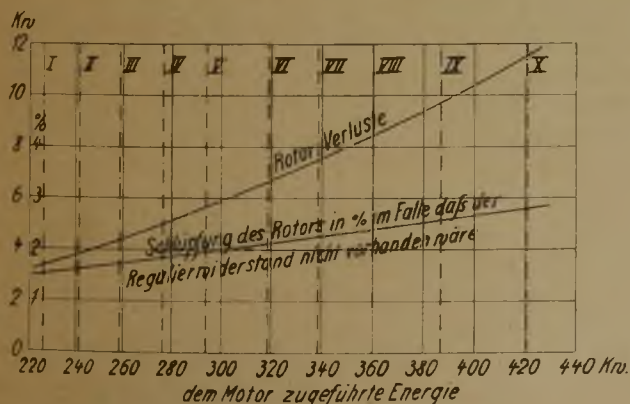 Kw
12
I II III IV V VI VII VIII IX X
10
%
8 4
Rotor Verluste
6 3
Schlüpfung des Rotors in % im Falle daß der
4 2
Regulierwiderstand nicht vorhanden wäre
2 1
0
220 240 260 280 300 320 340 360 380 400 420 440 Kw.
dem Motor zugeführte Energie